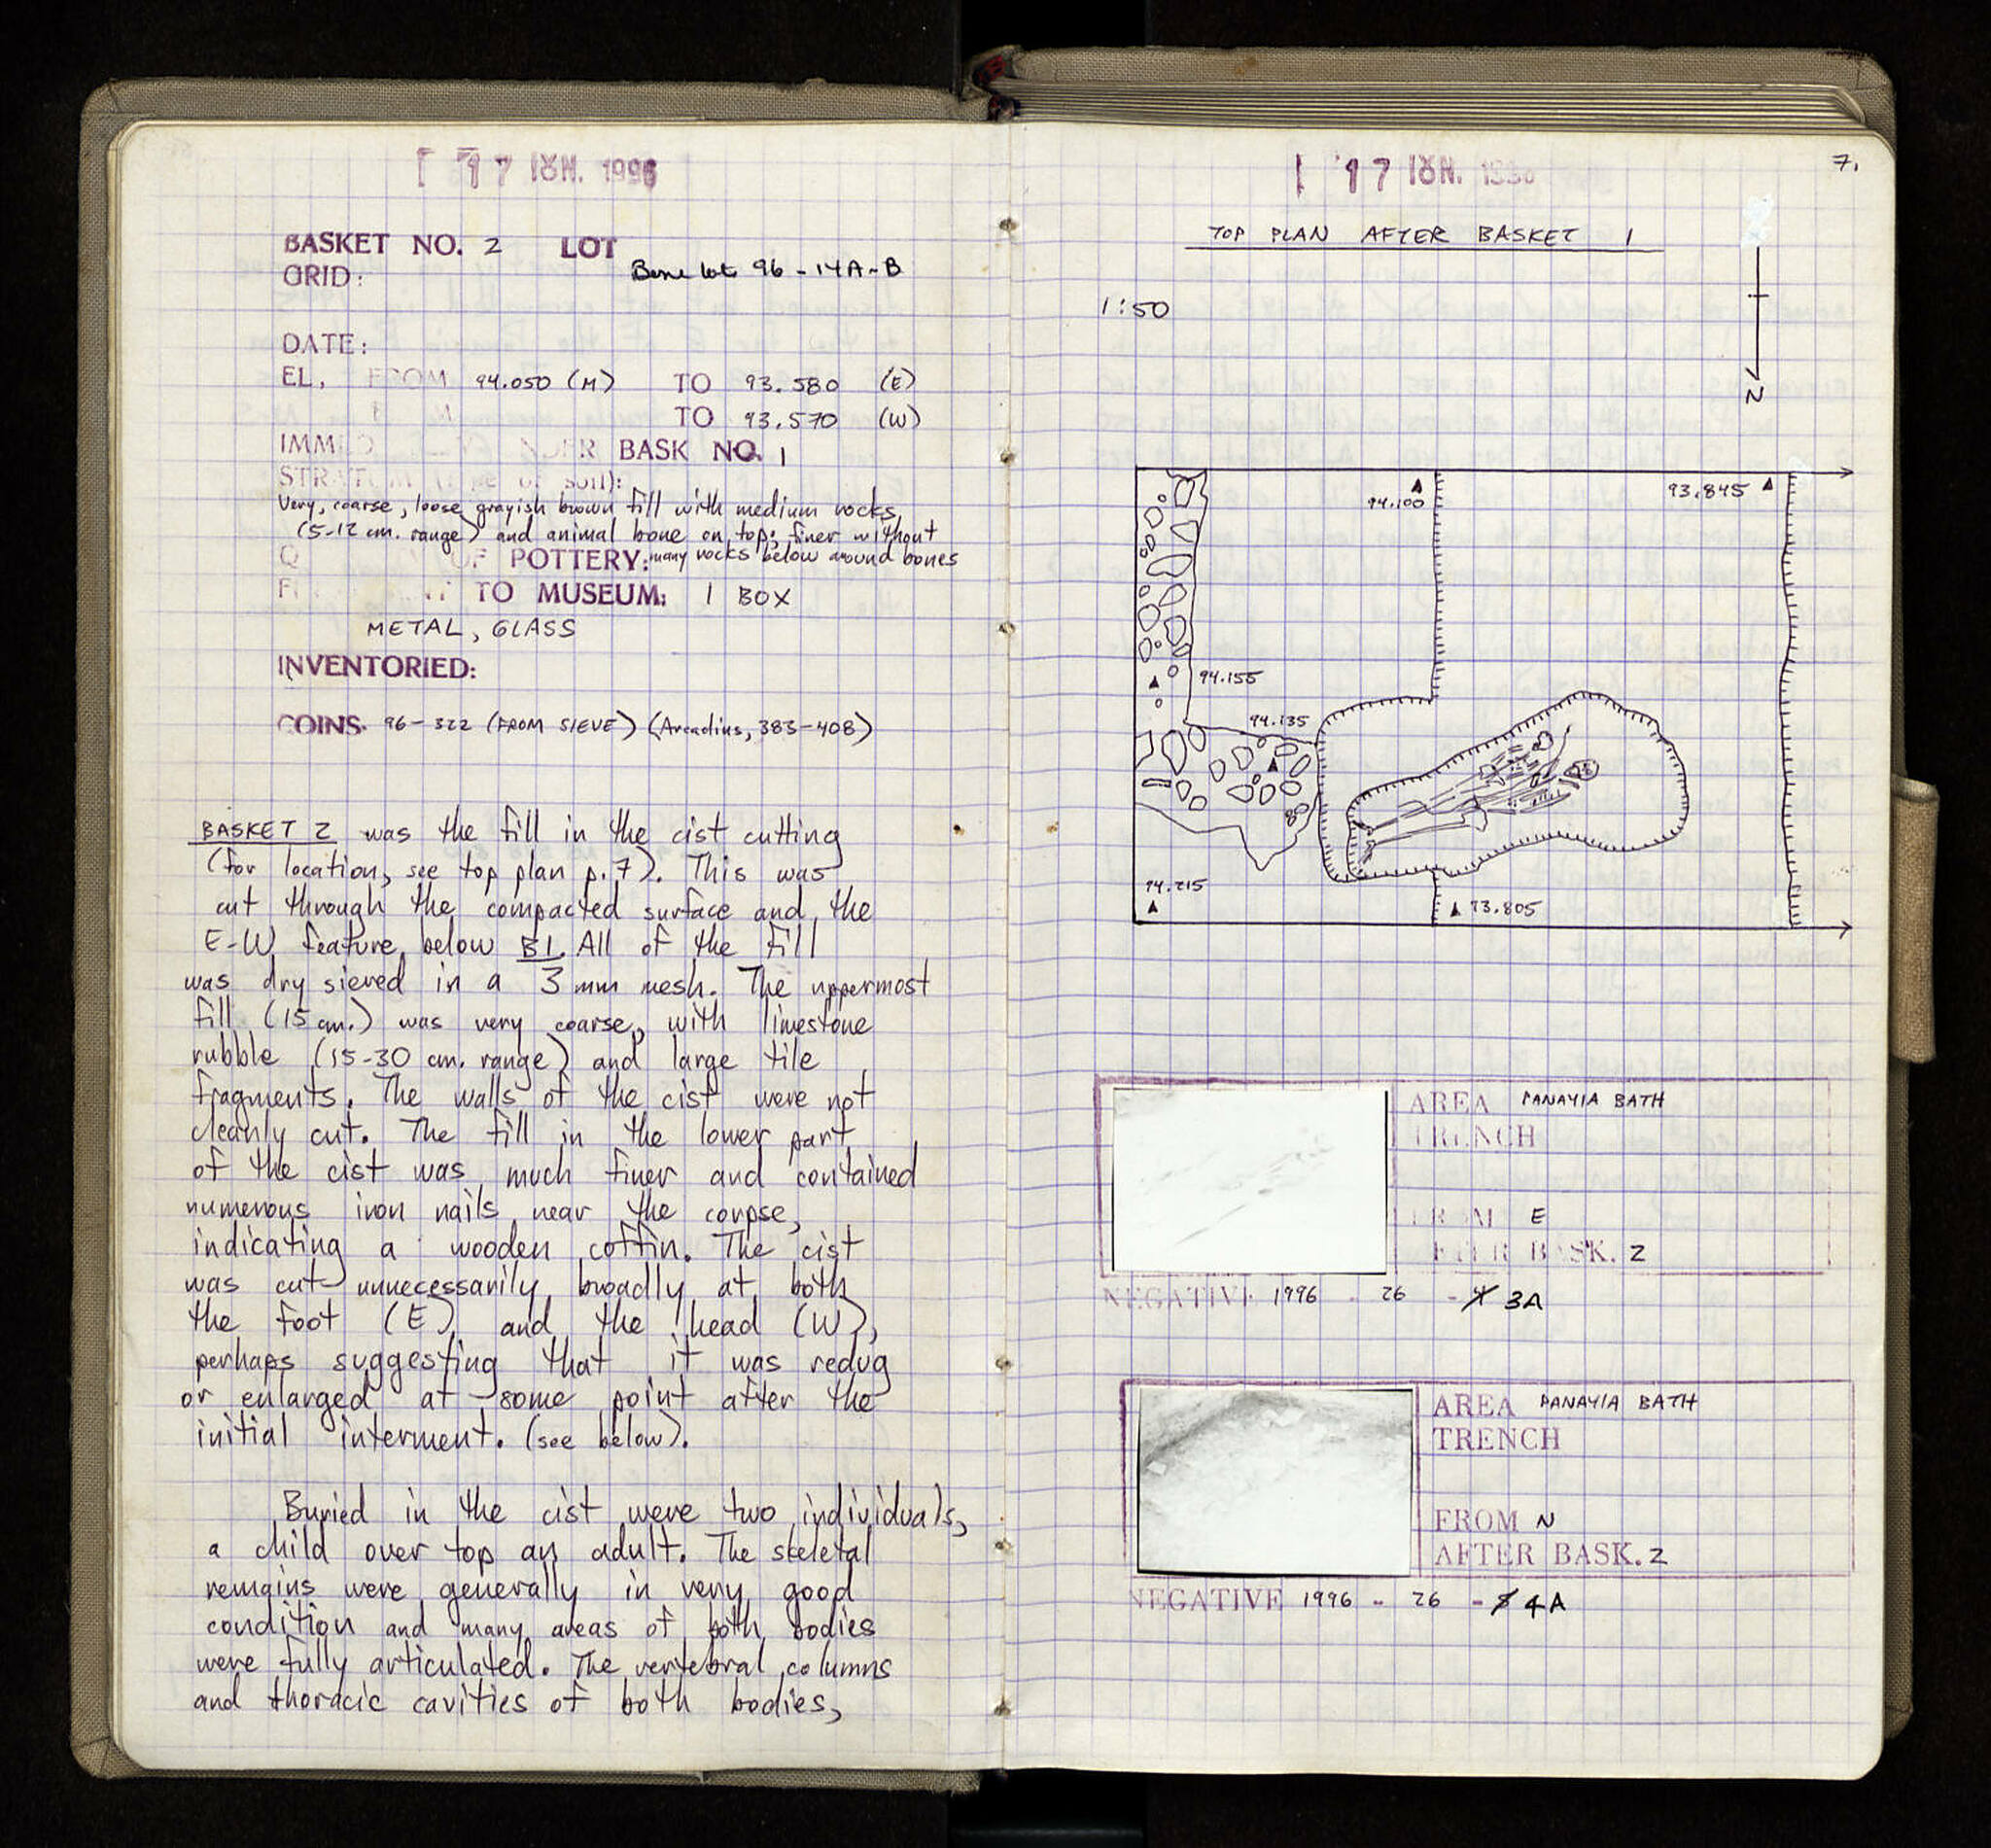 17 ΙΟΥΝ. 1996
BASKET NO. 2 LOT
Bone lot 96-14A-B
GRID:
DATE:
EL, FROM 94.050 (M) TO 93.580 (E)
TO 93.570 (W)
BASK NO. 1
Very, coarse, loose grayish brown fill with medium rocks
(5-12 cm. range) and animal bone on top; finer without
OF POTTERY: many rocks below around bones
TO MUSEUM: 1 BOX
METAL, GLASS
INVENTORIED:
COINS. 96-322 (FROM SIEVE) (Arcadius, 383-408)
BASKET 2 was the fill in the cist cutting
(for location, see top plan p.7). This was
cut through the compacted surface and the
E-W feature below B1. All of the fill
was dry sieved in a 3 mm mesh. The uppermost
fill (15 cm.) was very coarse, with limestone
rubble (15-30 cm. range) and large tile
fragments. The walls of the cist were not
cleanly cut. The fill in the lower part
of the cist was much finer and contained
numerous iron nails near the corpse,
indicating a wooden coffin. The cist
was cut unnecessarily broadly at both
the foot (E) and the head (W),
perhaps suggesting that it was redug
or enlarged at some point after the
initial interment. (see below).
Buried in the cist were two individuals,
a child over top an adult. The skeletal
remains were generally in very good
condition and many areas of both bodies
were fully articulated. The vertebral columns
and thoracic cavities of both bodies,
7.
17 ΙΟΥΝ.
TOP PLAN AFTER BASKET 1
1:50
N
94.100
93.845
94.155
94.135
94.215
93.805
AREA PANAYIA BATH
TRENCH
FROM E
AFTER BASK. 2
NEGATIVE 1996 - 26 - 3A
AREA PANAYIA BATH
TRENCH
FROM N
AFTER BASK. 2
NEGATIVE 1996 - 26 - 4A